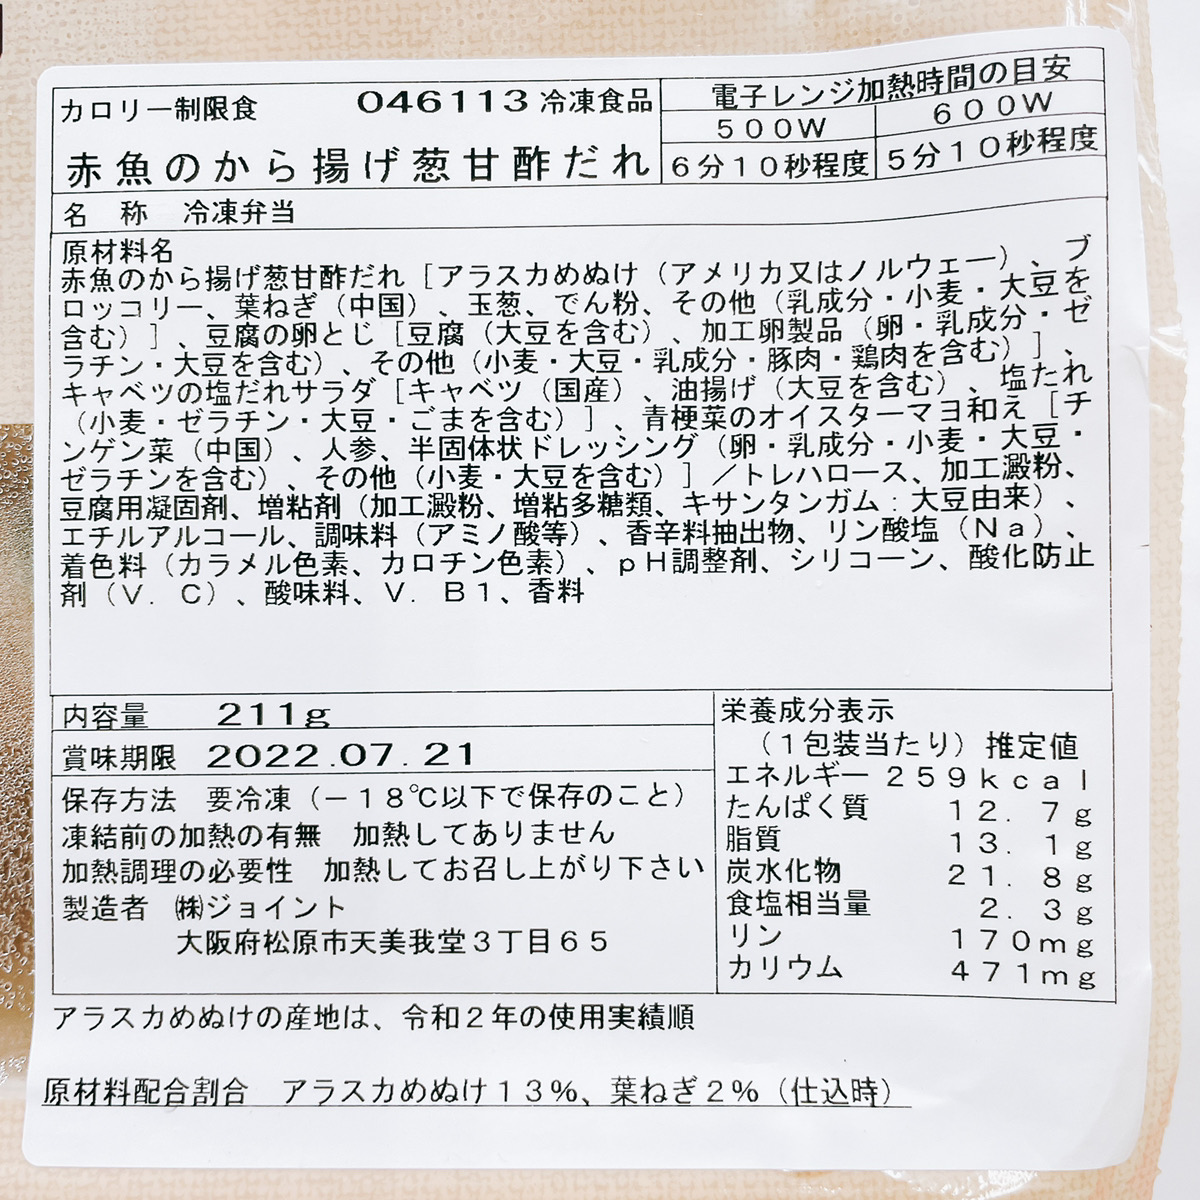 カロリー制限食　046113 冷凍食品
赤魚のから揚げ葱甘酢だれ
電子レンジ加熱時間の目安
500W　600W
6分10秒程度　5分10秒程度
名　称　冷凍弁当
原材料名
赤魚のから揚げ葱甘酢だれ［アラスカめぬけ（アメリカ又はノルウェー）、ブ
ロッコリー、葉ねぎ（中国）、玉葱、でん粉、その他（乳成分・小麦・大豆を
含む）］、豆腐の卵とじ［豆腐（大豆を含む）、加工卵製品（卵・乳成分・ゼ
ラチン・大豆を含む）、その他（小麦・大豆・乳成分・豚肉・鶏肉を含む）］、
キャベツの塩だれサラダ［キャベツ（国産）、油揚げ（大豆を含む）、塩たれ
（小麦・ゼラチン・大豆・ごまを含む）］、青梗菜のオイスターマヨ和え［チ
ンゲン菜（中国）、人参、半固体状ドレッシング（卵・乳成分・小麦・大豆・
ゼラチンを含む）、その他（小麦・大豆を含む）］／トレハロース、加工澱粉、
豆腐用凝固剤、増粘剤（加工澱粉、増粘多糖類、キサンタンガム：大豆由来）、
エチルアルコール、調味料（アミノ酸等）、香辛料抽出物、リン酸塩（Na）、
着色料（カラメル色素、カロチン色素）、pH調整剤、シリコーン、酸化防止
剤（V．C）、酸味料、V．B1、香料
内容量　211g
賞味期限　2022.07.21
保存方法　要冷凍（－18℃以下で保存のこと）
凍結前の加熱の有無　加熱してありません
加熱調理の必要性　加熱してお召し上がり下さい
製造者　㈱ジョイント
大阪府松原市天美我堂3丁目65
栄養成分表示
（1包装当たり）推定値
エネルギー 259kcal
たんぱく質　12．7g
脂質　13．1g
炭水化物　21．8g
食塩相当量　2．3g
リン　170mg
カリウム　471mg
アラスカめぬけの産地は、令和2年の使用実績順
原材料配合割合　アラスカめぬけ13％、葉ねぎ2％（仕込時）